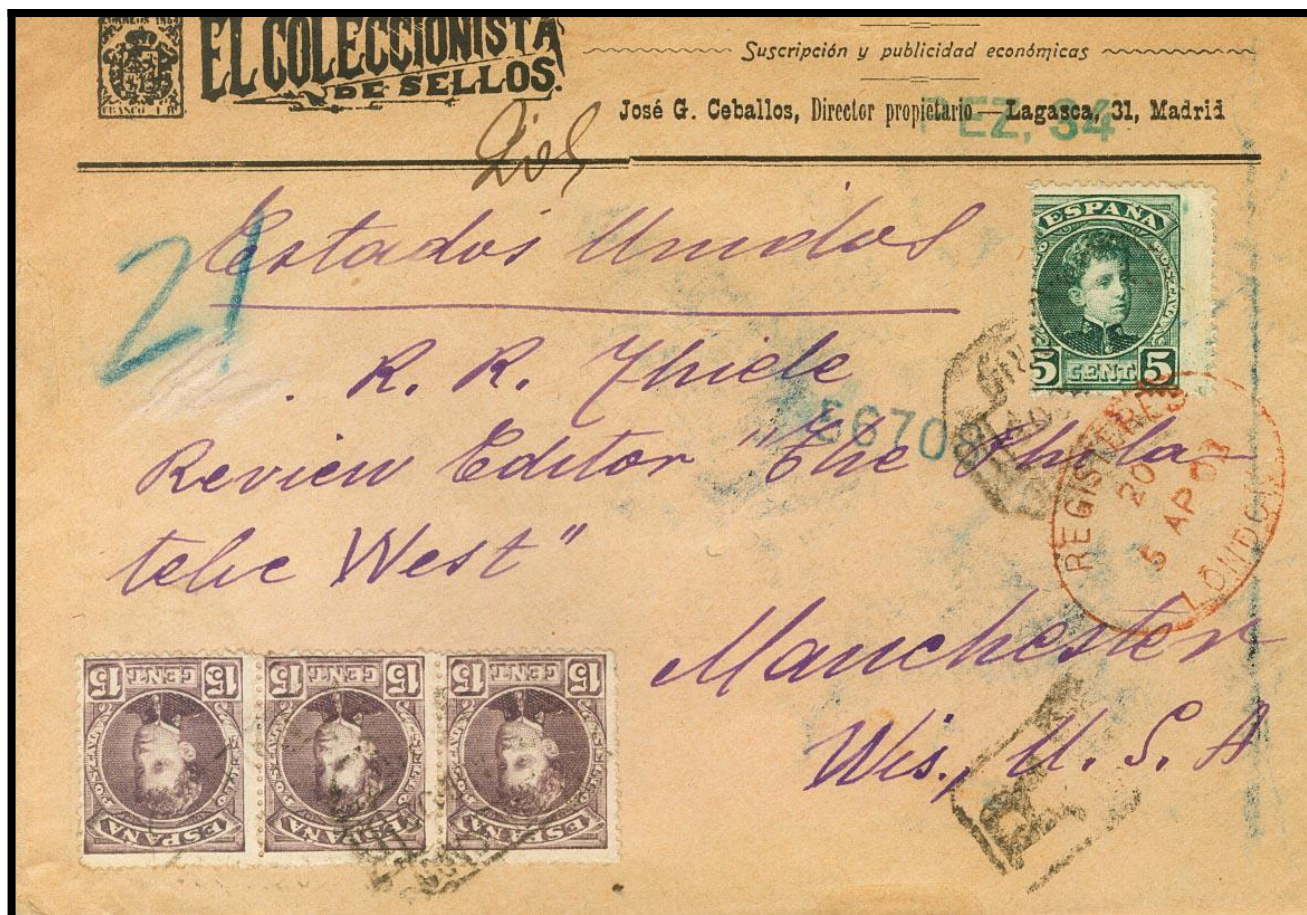 CORREOS 1854
FRANCO 1 R.
EL COLECCIONISTA
DE SELLOS.
Suscripción y publicidad económicas
José G. Ceballos, Director propietario — Lagasca, 31, Madrid
PEZ, 34
21
Estados Unidos
R. R. Thiele
Review Editor "The Phila-
telic West"
Manchester
Wis., U. S. A
56708
ESPAÑA
5 CENT. 5
REGISTERED
20
5 AP 03
LONDON
15 CENT 15
ESPAÑA
15 CENT 15
ESPAÑA
15 CENT 15
ESPAÑA
R